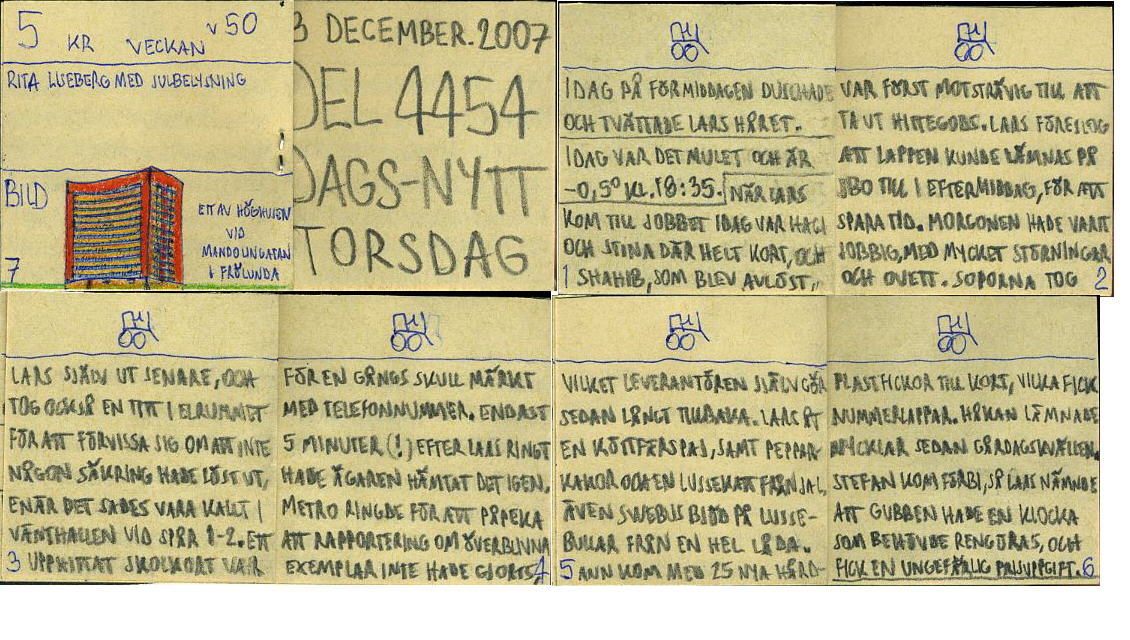 5 KR VECKAN V 50
RITA LISEBERG MED JULBELYSNING
BILD
7
ETT AV HÖGHUSEN
VID
MANDOLINGATAN
I FRÖLUNDA
3 DECEMBER. 2007
DEL 4454
DAGS-NYTT
TORSDAG
IDAG PÅ FÖRMIDDAGEN DUSCHADE
OCH TVÄTTADE LARS HÅRET.
IDAG VAR DET MULET OCH ÄR
-0,5° KL. 18:35. NÄR LARS
KOM TILL JOBBET IDAG VAR
OCH STINA DÄR HELT KORT, OCH
1 SHAHIB, SOM BLEV AVLÖST,
VAR FÖRST MOTSTRÄVIG TILL ATT
TA UT HITTEGODS. LARS FÖRESLOG
ATT LAPPEN KUNDE LÄMNAS PÅ
BO TILL I EFTERMIDDAG, FÖR ATT
SPARA TID. MORGONEN HADE VARIT
JOBBIG, MED MYCKET STÖRNINGAR
OCH OVETT. SOPORNA TOG 2
LARS SJÄLV UT SENARE, OCH
TOG OCKSÅ EN TITT I ELRUMMET
FÖR ATT FÖRVISSA SIG OM ATT INTE
NÅGON SÄKRING HADE LÖST UT,
ENÄR DET SADES VARA KALLT I
VÄNTHALLEN VID SPÅR 1-2. ETT
3 UPPHITTAT SKOLKORT VAR
FÖR EN GÅNGS SKULL MÄRKT
MED TELEFONNUMMER. ENDAST
5 MINUTER (!) EFTER LARS RINGT
HADE ÄGAREN HÄMTAT DET IGEN.
METRO RINGDE FÖR ATT PÅPEKA
ATT RAPPORTERING OM ÖVERBLIVNA
EXEMPLAR INTE HADE GJORTS, 4
VILKET LEVERANTÖREN SJÄLV GÖR
SEDAN LÅNGT TILLBAKA. LARS ÅT
EN KÖTTFÄRSPAJ, SAMT PEPPAR-
KAKOR OCH EN LUSSEKATT FRÅN
ÄVEN SWEBUS BJÖD PÅ LUSSE-
BULLAR FRÅN EN HEL LÅDA.
5 ANN KOM MED 25 NYA HÅRD-
PLASTFICKOR TILL KORT, VILKA FICK
NUMMERLAPPAR. HÅKAN LÄMNADE
NYCKLAR SEDAN GÅRDAGSKVÄLLEN.
STEFAN KOM FÖRBI, SÅ LARS NÄMNDE
ATT GUBBEN HADE EN KLOCKA
SOM BEHÖVDE RENGÖRAS, OCH
FICK EN UNGEFÄRLIG PRISUPPGIFT. 6